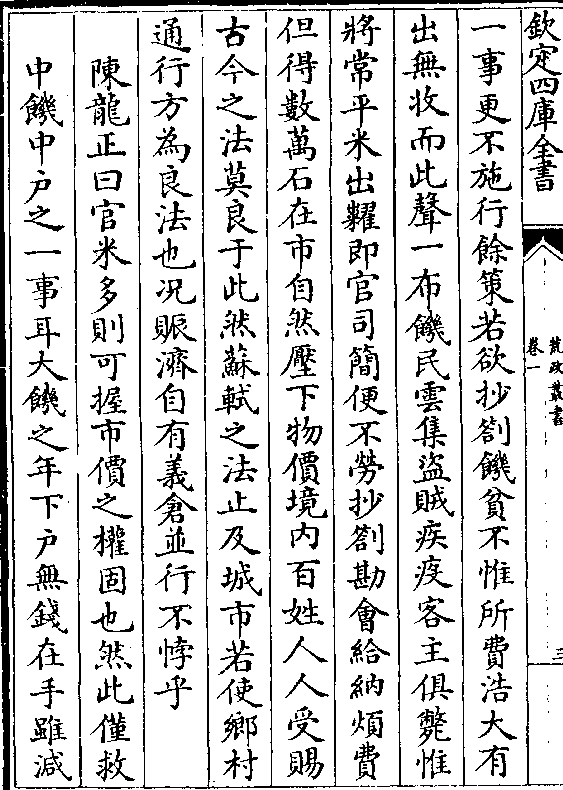 欽定四庫全書
荒政叢書
卷一
三
一事更不施行餘策若欲抄劄饑貧不惟所費浩大有
出無收而此聲一布饑民雲集盜賊疾疫客主俱斃惟
將常平米出糶即官司簡便不勞抄劄勘會給納煩費
但得數萬石在市自然壓下物價境内百姓人人受賜
古今之法莫良于此然蘇軾之法止及城市若使鄉村
通行方為良法也况賑濟自有義倉並行不悖乎
陳龍正曰官米多則可握市價之權固也然此僅救
中饑中户之一事耳大饑之年下户無錢在手雖減